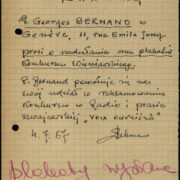 Georges BERNAND w
Genève, 11, rue Emile Jung
prosi o nadesłanie mu plakatu
Konkursu Wieniawskiego.
P. Bernand powołuje się na
swój udział w reklamowaniu
Konkursu w Radio i prasie
szwajcarskiej "voix ouvrière"
4.7.57
plakaty wysłane